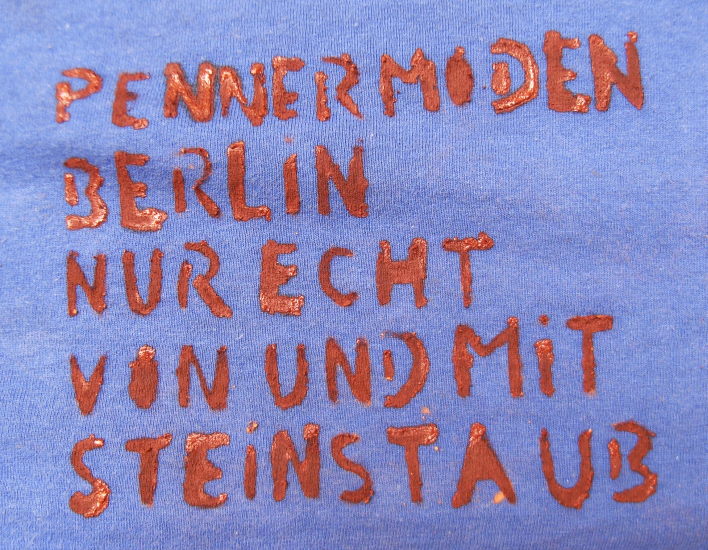 PENNERMODEN
BERLiN
NUR ECHT
VON UND MiT
STEiNSTAUB